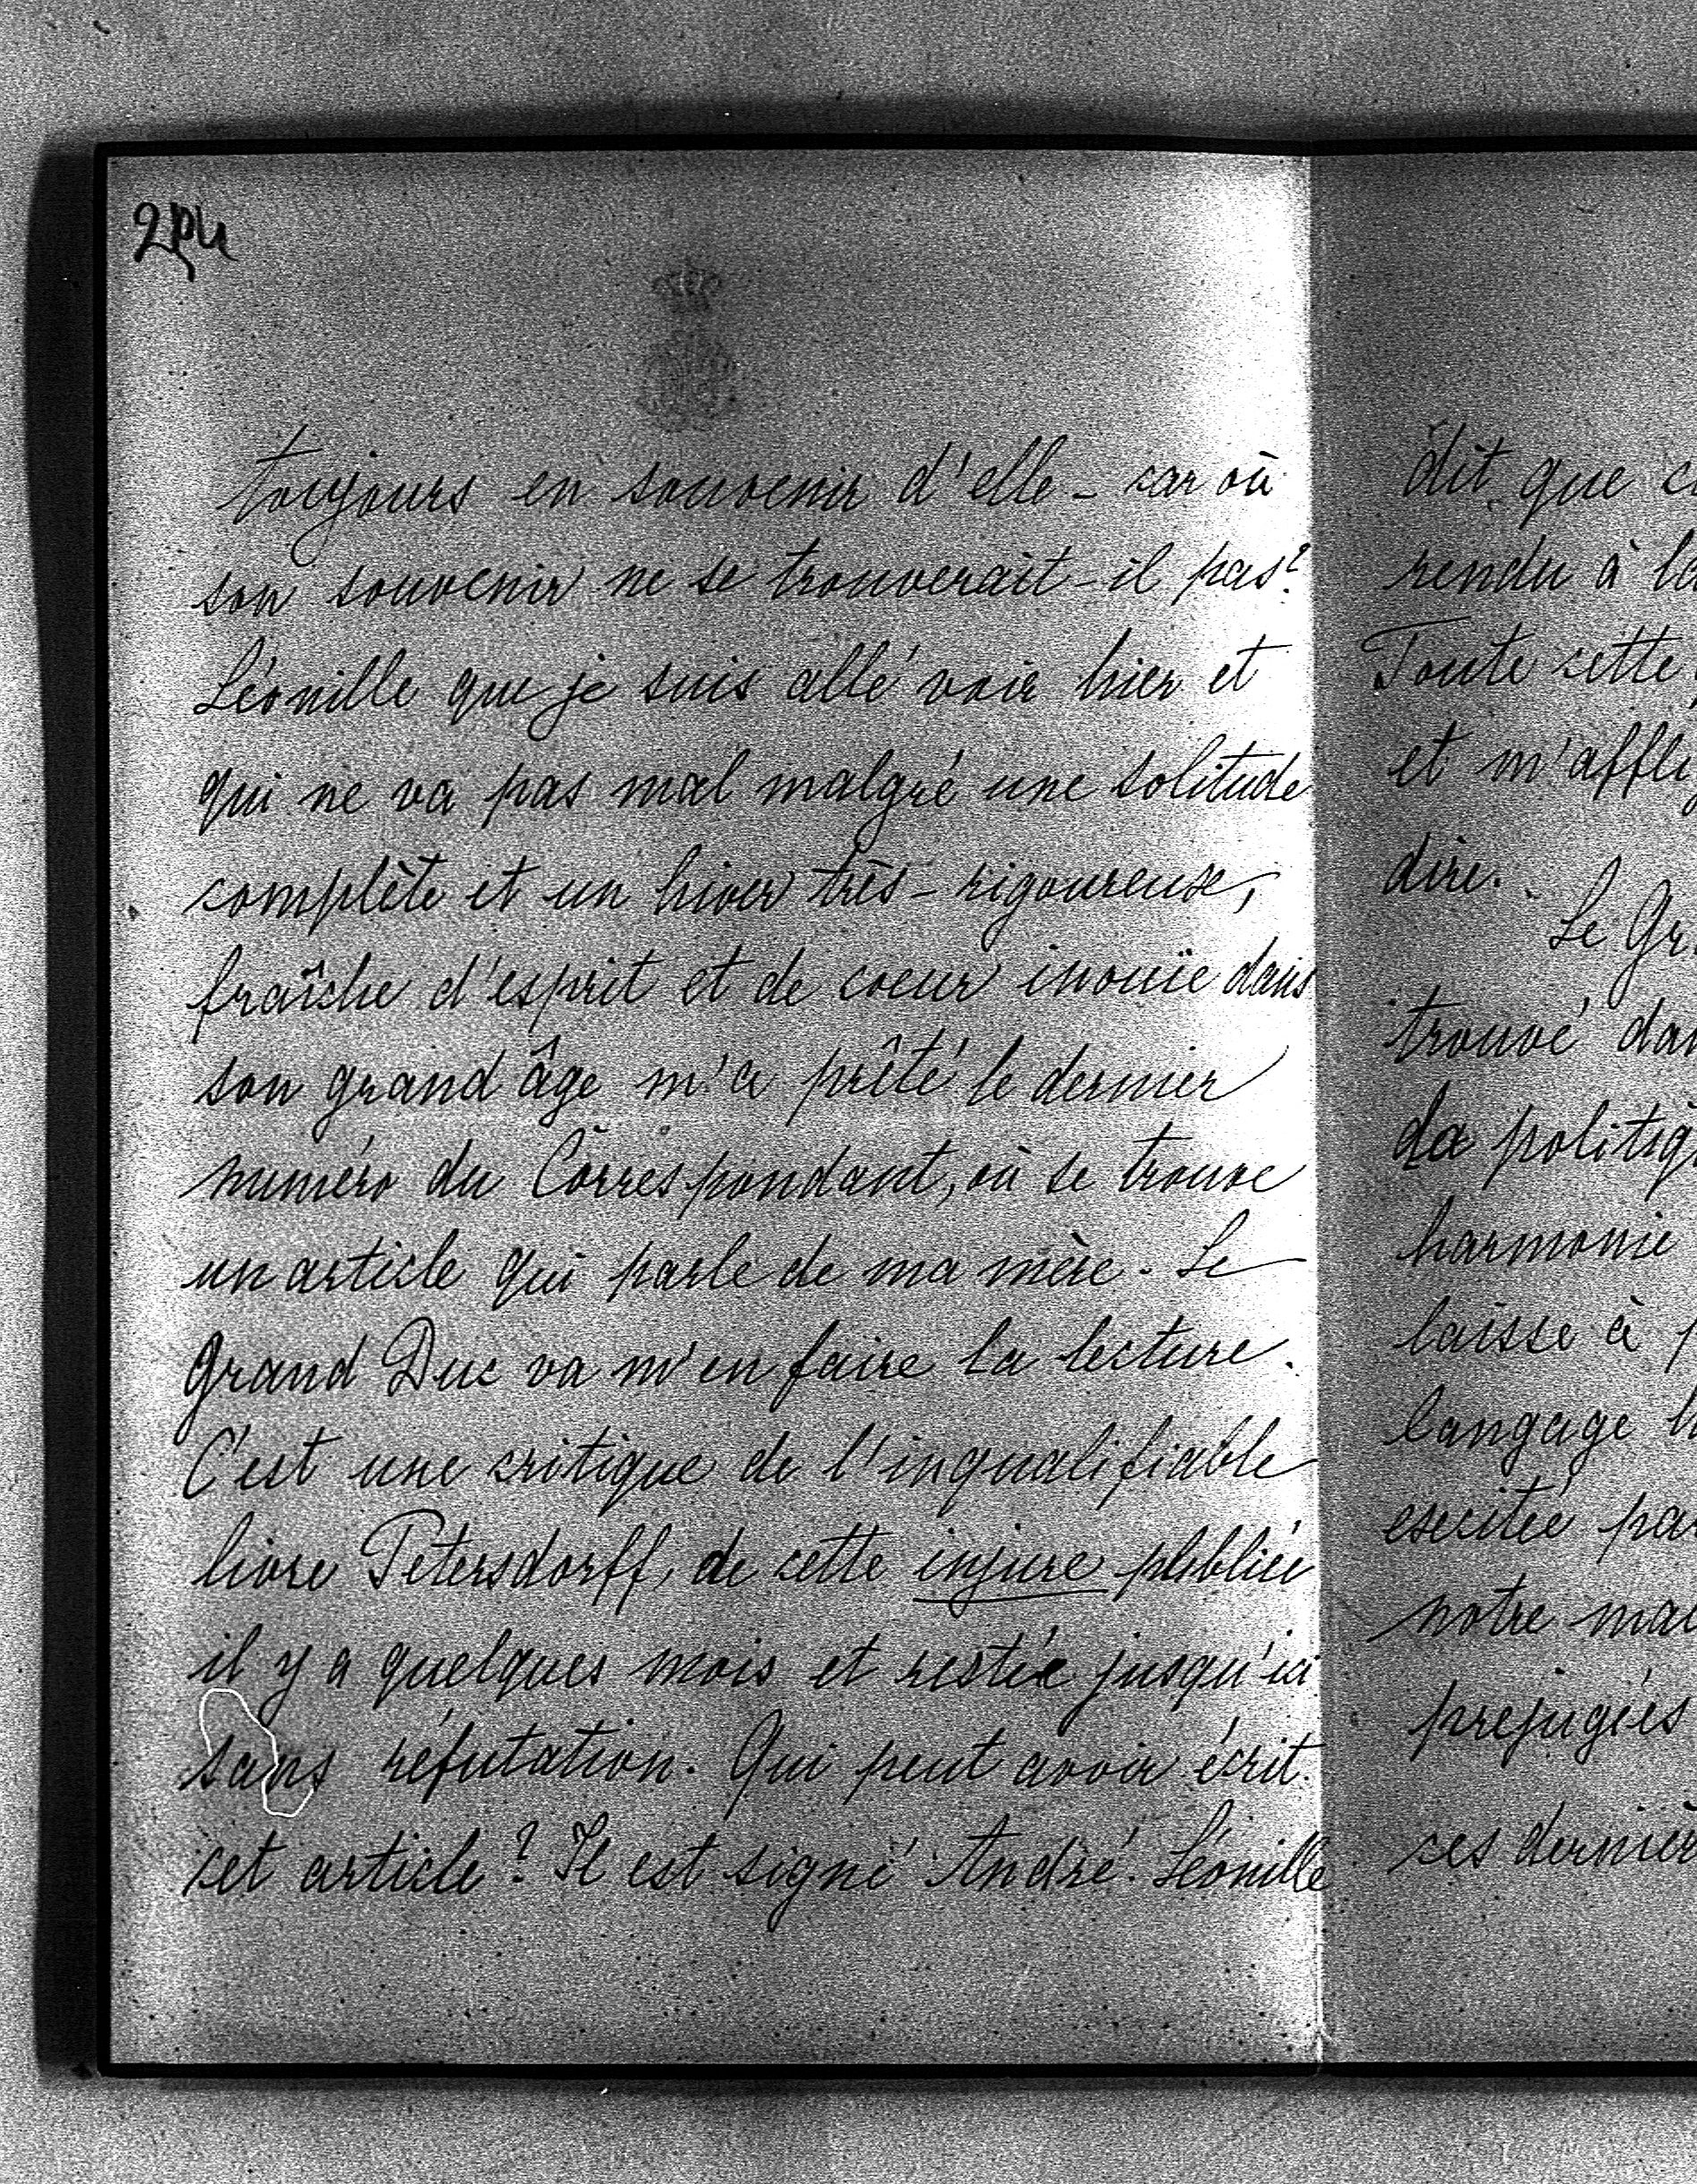 toujours en souvenir d'elle - car où
son souvenir ne se trouverait-il pas?
Léonille que je suis allé voir hier et
qui ne va pas mal malgré une solitude
complète et un hiver très-rigoureux,
fraîche d'esprit et de coeur inouïe dans
son grand âge m'a prêté le dernier
numéro du Correspondant, où se trouve
un article qui parle de ma mère. Le
grand Duc va m'en faire la lecture.
C'est une critique de l'inqualifiable
livre Petersdorff, de cette injure publiée
il y a quelques mois et restée jusqu'ici
sans réfutation. Qui peut avoir écrit
cet article? Il est signé André. Léonille
dit que
rendu à la
Toute cette
et m'afflig
dire.
Le Gr
trouvé dan
la politiq
harmonie
laisse à p
langage
excitée par
notre mal
prejugées
ces dernièr